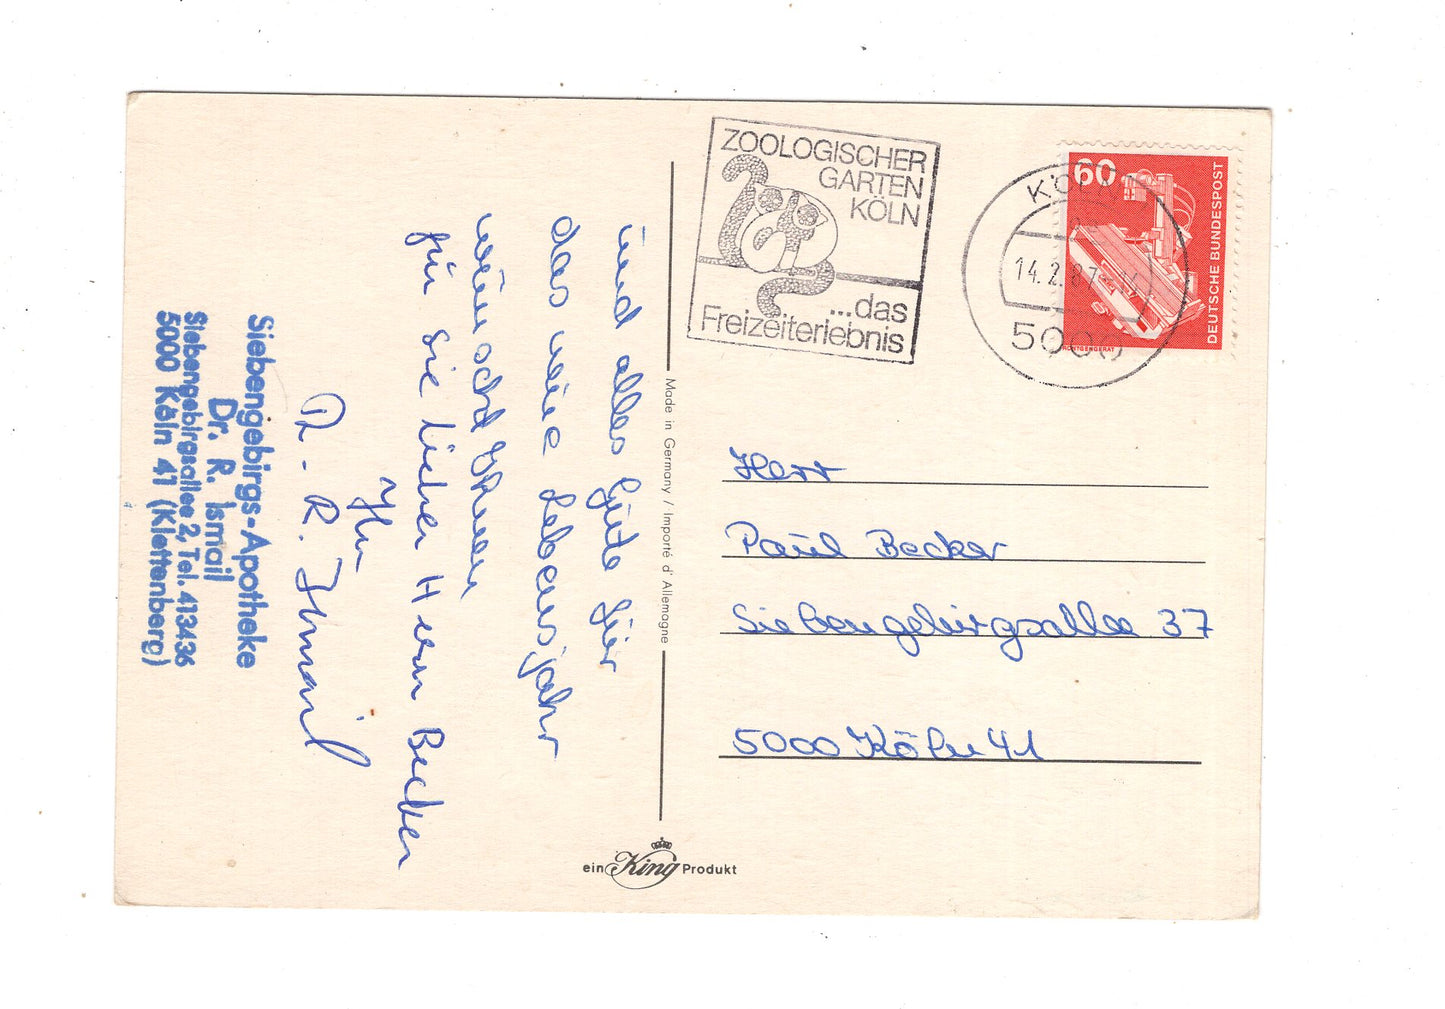 ZOOLOGISCHER
GARTEN
KÖLN
...das
Freizeiterlebnis
KÖLN
14.2.87
5000
60
DEUTSCHE BUNDESPOST
RÖNTGENGERÄT
und alles Gute für
das neue Lebensjahr
wünscht Ihnen
für Sie lieber Herr Becker
Ihr
Dr. R. Ismail
Siebengebirgs-Apotheke
Dr. R. Ismail
Siebengebirgsallee 2, Tel. 413436
5000 Köln 41 (Klettenberg)
Made in Germany / Importé d'Allemagne
Herr
Paul Becker
Siebengebirgsallee 37
5000 Köln 41
ein King Produkt